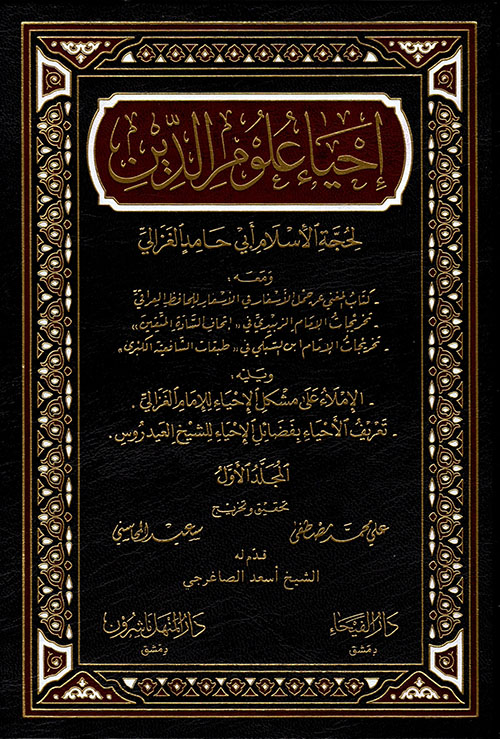 إحياء علوم الدين
لحجة الإسلام أبي حامد الغزالي
ومعه:
- كتاب المغني عن حمل الأسفار في الأسفار للحافظ العراقي
- تخريجات الإمام الزبيدي في «إتحاف السادة المتقين»
- تخريجات الإمام ابن السبكي في «طبقات الشافعية الكبرى»
ويليه:
- الإملاء على مشكل الإحياء للإمام الغزالي.
- تعريف الأحياء بفضائل الإحياء للشيخ العيدروس.
المجلد الأول
تحقيق وتخريج
علي محمد مصطفى سعيد المحاسني
قدم له
الشيخ أسعد الصاغرجي
دار الفيحاء دار المنهل ناشرون
دمشق دمشق